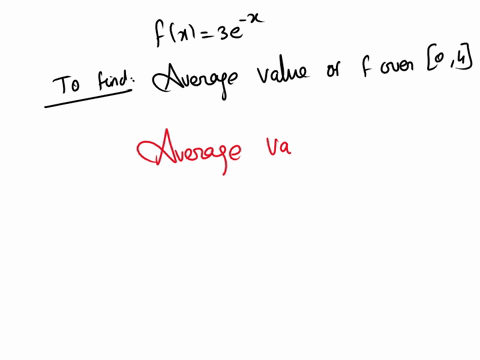 f(x) = 3e^{-x}
To find: Average value of f over [0, 4]
Average va